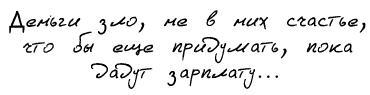 Деньги зло, не в них счастье,
что бы еще придумать, пока
дадут зарплату...